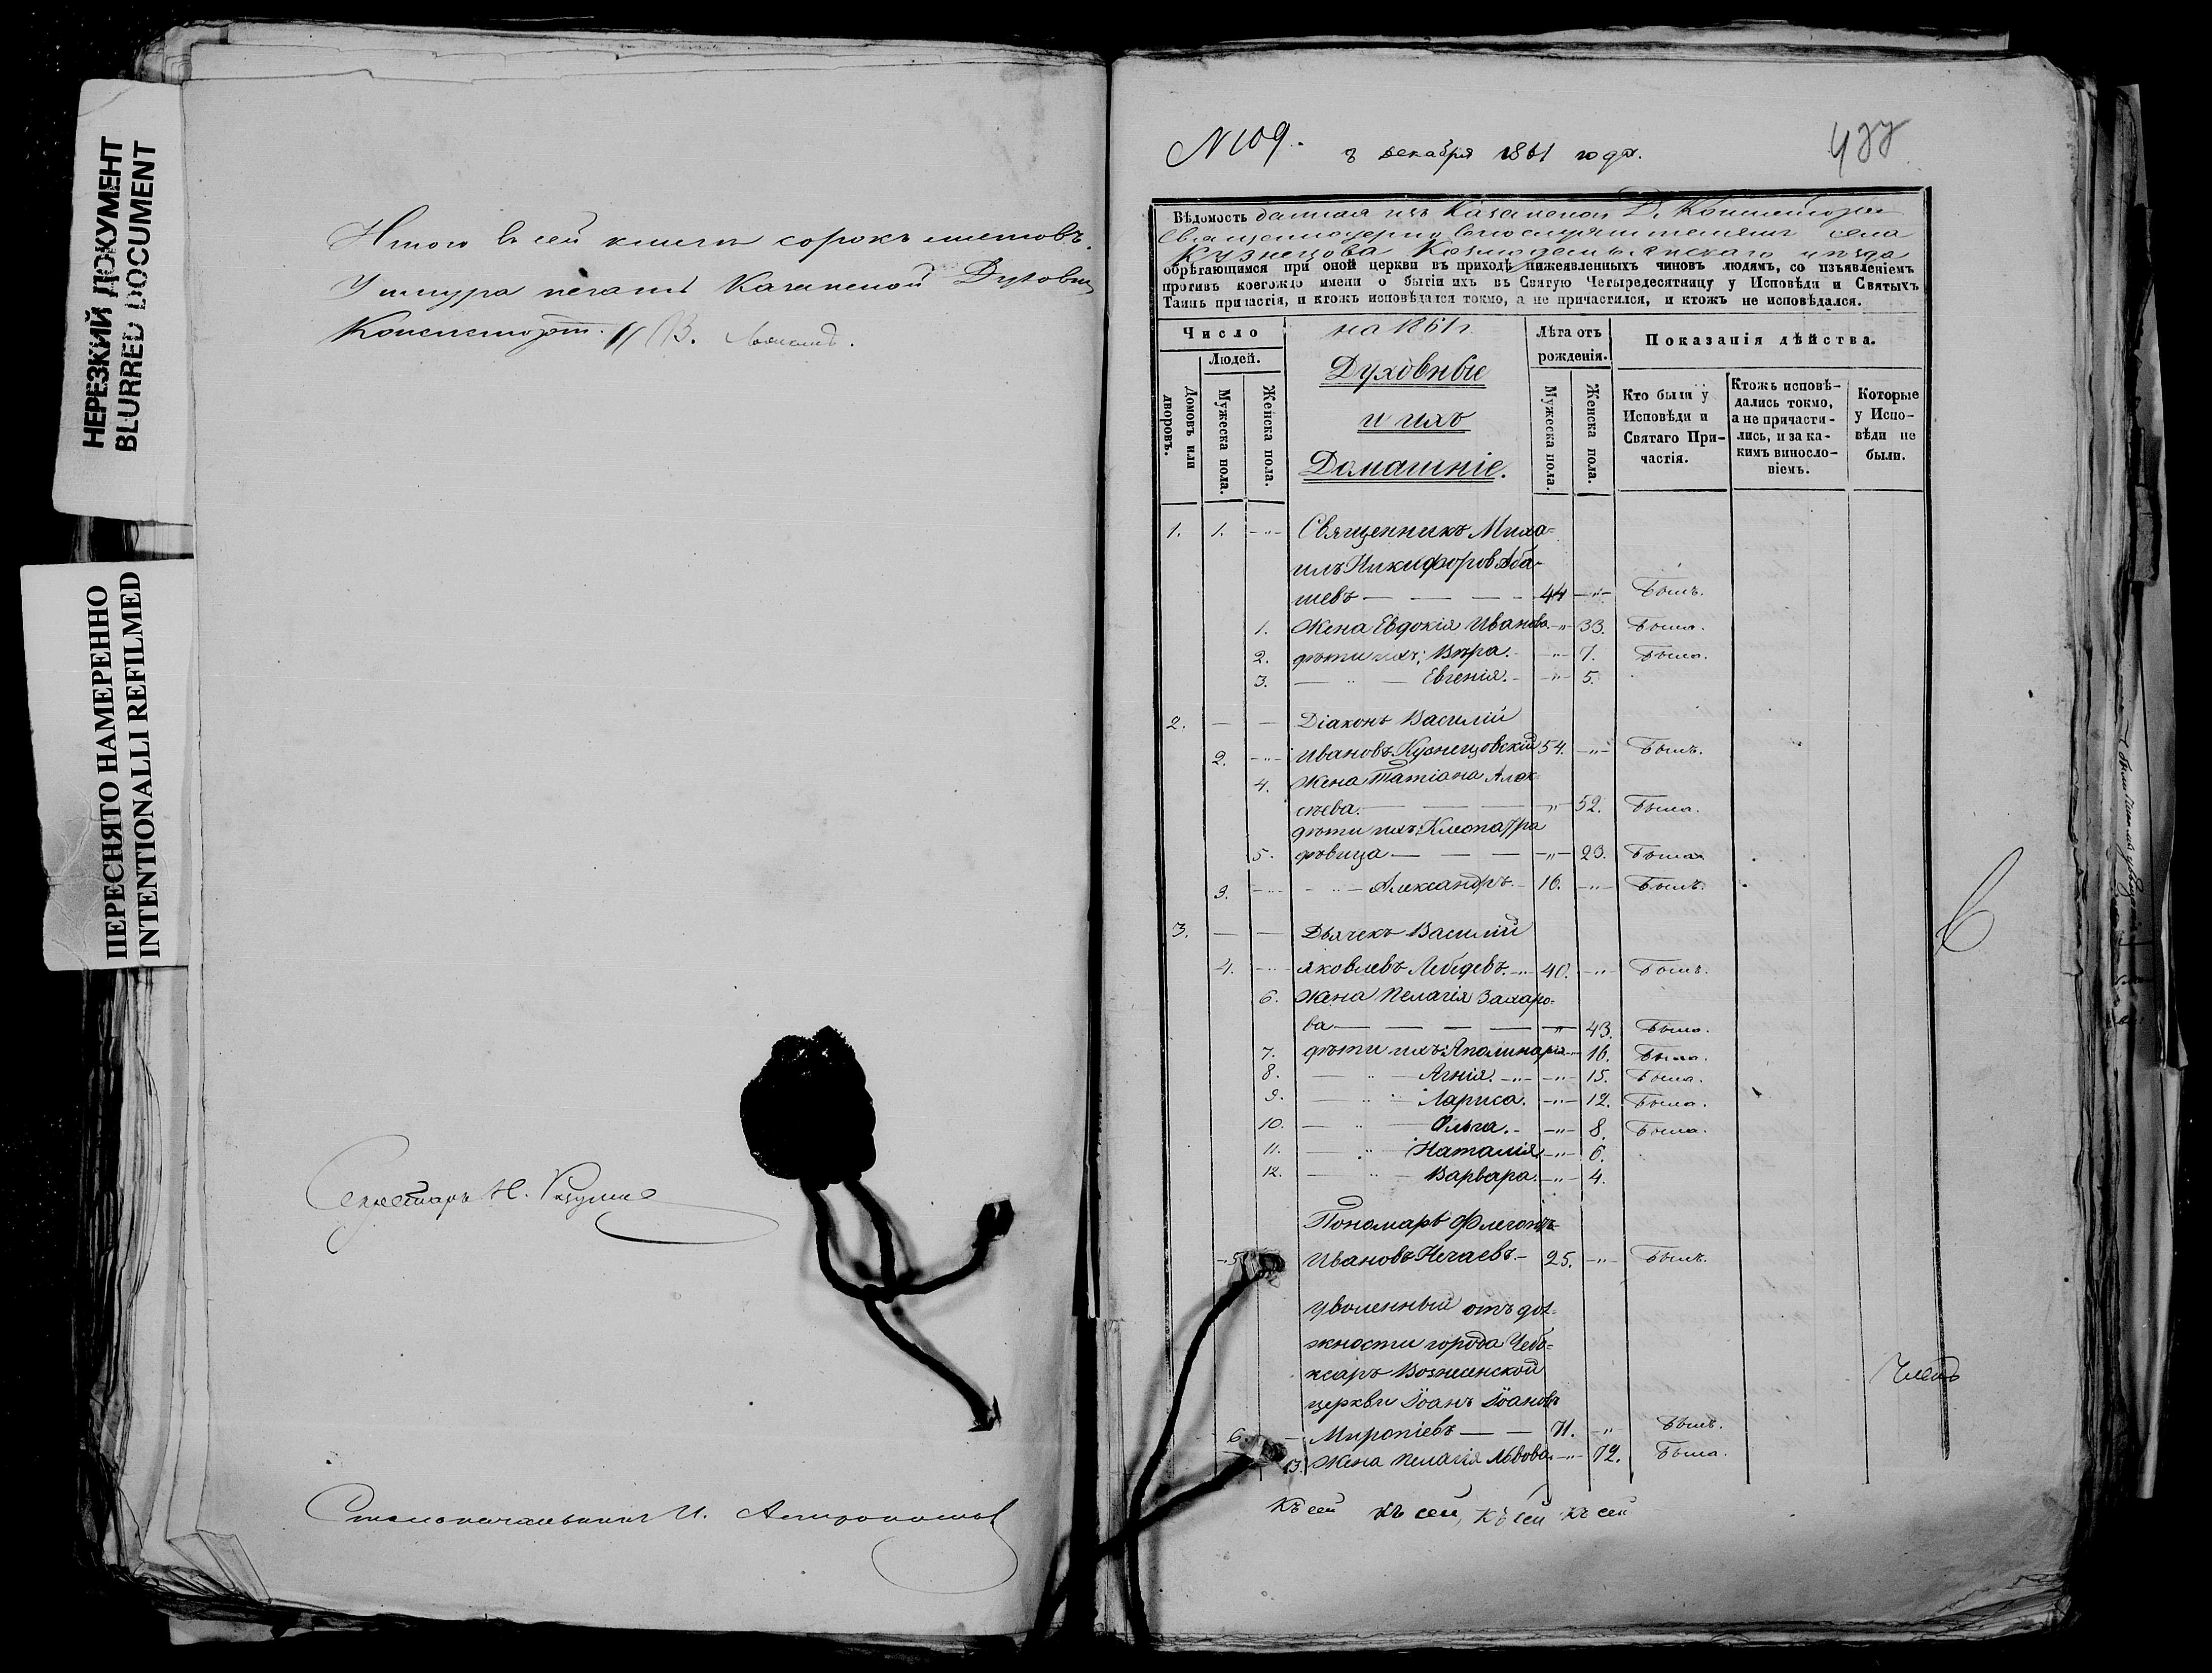 НЕРЕЗКИЙ ДОКУМЕНТ
BLURRED DOCUMENT
ПЕРЕСНЯТО НАМЕРЕННО
INTENTIONALLI REFILMED
Итого в сей книги сорокъ листовъ.
У шнура печать Казанской Духовной
Консисторіи.
Секретарь Н.
Столоначальникъ И.
N 109.
3 декабря 1861 года.
477
Вѣдомость данная изъ Казанской Д. Консисторіи
Священноцерковнослужителямъ села
Кузнецова Козмодемьянскаго уѣзда
обрѣтающимся при оной церкви въ приходѣ нижеявленныхъ чиновъ людямъ, со изъявленіемъ
противъ коегождо имени о бытіи ихъ въ Святую Четыредесятницу у Исповѣди и Святыхъ
Таинъ причастія, и ктожъ исповѣдался токмо, а не причастился, и ктожъ не исповѣдался.
Число
Людей.
Домовъ или дворовъ.
Мужеска пола.
Женска пола.
на 1861 г.
Духовные
и ихъ
Домашніе.
Лѣта отъ рожденія.
Мужеска пола.
Женска пола.
Показанія дѣйства.
Кто были у Исповѣди и Святаго Причастія.
Ктожъ исповѣдались токмо, а не причастились, и за какимъ винословіемъ.
Которые у Исповѣди не были.
1. 1. -"- Священникъ Миха-
илъ Никифоровъ Аба-
шевъ — — — 44 -"- Былъ.
1. Жена Евдокія Иванова -"- 33. Была.
2. дѣти ихъ: Вѣра. -"- 7. Была.
3. — " — Евгенія. -"- 5.
2. — — Діаконъ Василій
2. -"- Ивановъ Кузнецовскій 54. -"- Былъ.
4. Жена Татіана Алек-
сѣева. — — — " 52. Была.
дѣти ихъ: Клеопатра
5. дѣвица — — — -"- 23. Была
3. -"- - " - Александръ. 16. -"- Былъ.
3. — — Дьячекъ Василій
4. -"- Яковлевъ Лебедевъ. -"- 40. -"- Былъ.
6. Жена Пелагія Захаро-
ва — — — — " 43. Была.
7. дѣти ихъ: Аполинарія -"- 16. Была.
8. — " — Агнія. -"- -"- 15. Была.
9. — " — Лариса. -"- 12. Была.
10. — " — Ольга. -"- 8. Была.
11. — " — Наталія. -"- 6.
12. — " — Варвара. -"- 4.
Пономарь Флегонтъ
5 Ивановъ Нечаевъ. 25. -"- Былъ.
уволенный отъ дол-
жности города Чебо-
ксаръ Вознесенской
церкви Іоанъ Іоановъ
6. - Миропіевъ — — 71. -" Былъ.
13. Жена Пелагія Львова. -"- 72. Была.
Членъ
Къ сей къ сей, Къ сей Къ сей